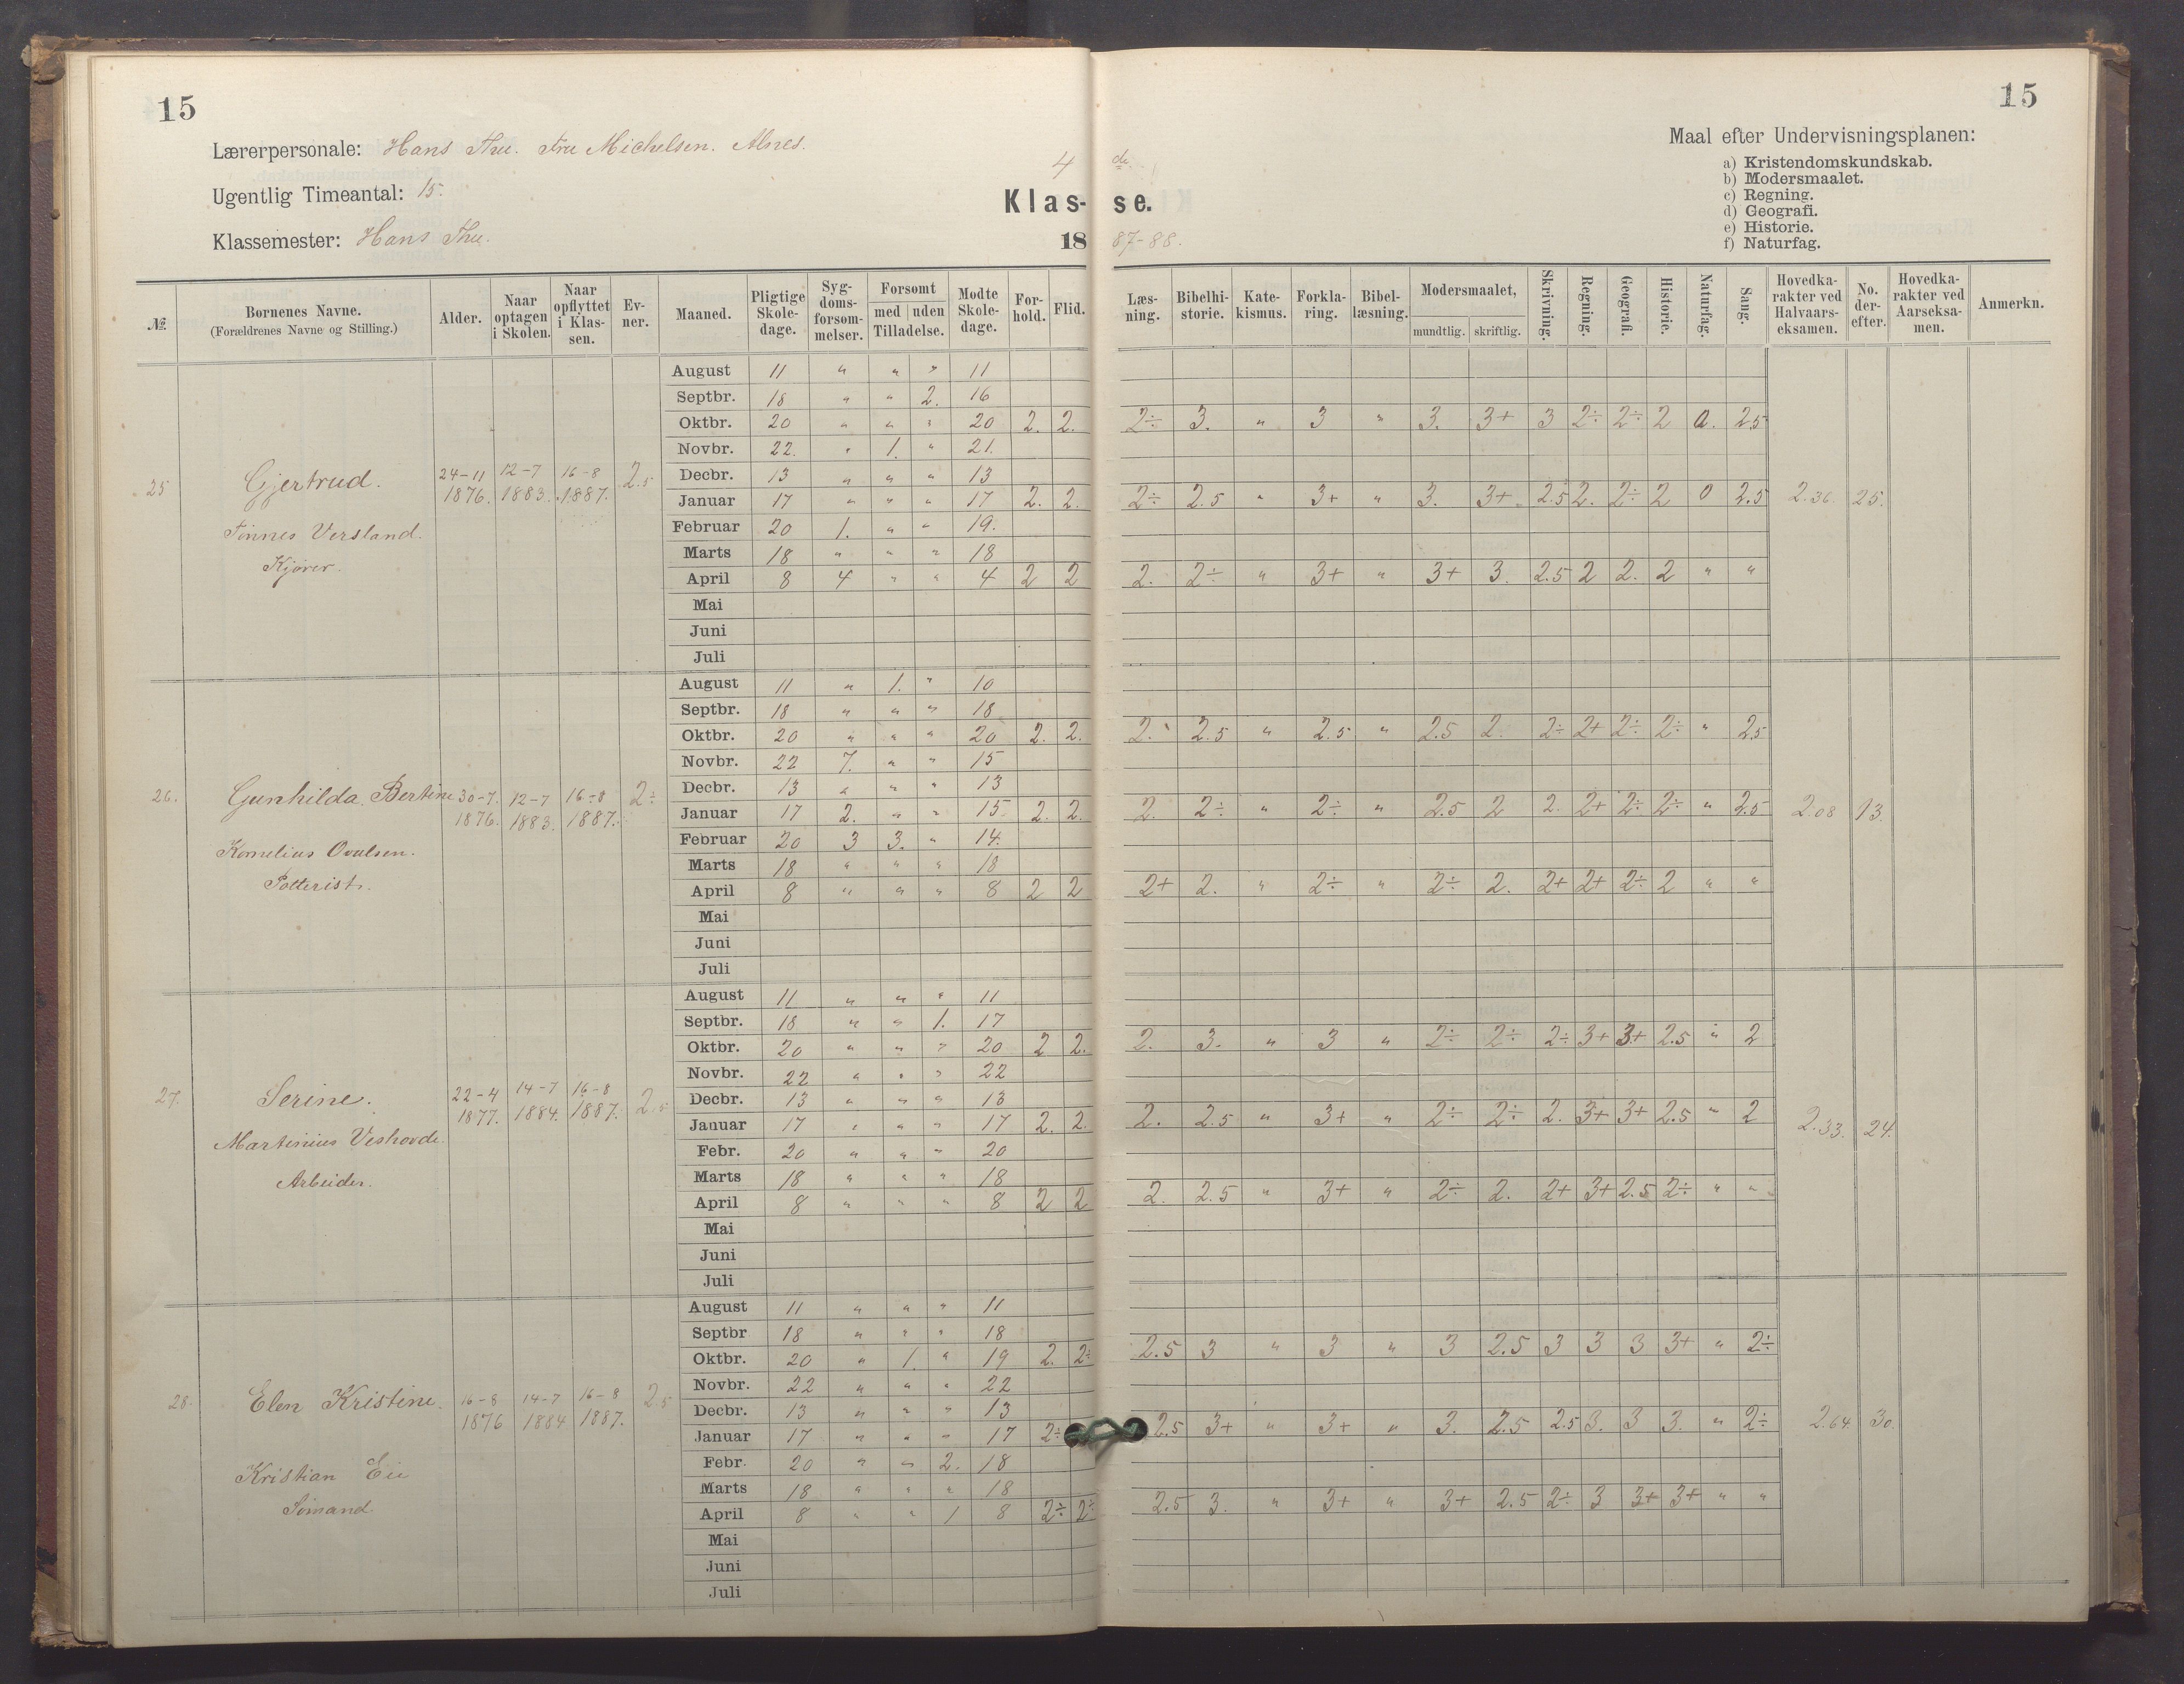 15
15
Lærerpersonale: Hans Thu. Fru Michelsen. Alnes.
Ugentlig Timeantal: 15.
Klassemester: Hans Thu.
4 de
Klas- se.
18 87-88.
Maal efter Undervisningsplanen:
a) Kristendomskundskab.
b) Modersmaalet.
c) Regning.
d) Geografi.
e) Historie.
f) Naturfag.
№ | Børnenes Navne. (Forældrenes Navne og Stilling.) | Alder. | Naar optagen i Skolen. | Naar opflyttet i Klassen. | Evner. | Maaned. | Pligtige Skoledage. | Sygdomsforsommelser. | Forsømt med uden Tilladelse. | Mødte Skoledage. | Forhold. | Flid. | Læsning. | Bibelhistorie. | Katekismus. | Forklaring. | Bibellæsning. | Modersmaalet, mundtlig. skriftlig. | Skrivning. | Regning. | Geografi. | Historie. | Naturfag. | Sang. | Hovedkarakter ved Halvaarseksamen. | No. derefter. | Hovedkarakter ved Aarseksamen. | Anmerkn.
25 Gjertrud. 24-11 1876. 12-7 1883. 16-8 1887. 2.5
Tinnes Versland.
Kjører.
August 11 " " " 11
Septbr. 18 " " 2. 16
Oktbr. 20 " " " 20 2. 2. 2÷ 3. " 3 " 3. 3+ 3 2÷ 2÷ 2 0. 2.5
Novbr. 22. " 1. " 21.
Decbr. 13 " " " 13
Januar 17 " " " 17 2. 2. 2÷ 2.5 " 3+ " 3. 3+ 2.5 2. 2÷ 2 0 2.5 2.36. 25.
Februar 20 1. " " 19.
Marts 18 " " " 18
April 8 4 " " 4 2 2 2. 2÷ " 3+ " 3+ 3. 2.5 2 2. 2 " "
Mai
Juni
Juli
26. Gunhilda Bertine 30-7. 1876. 12-7 1883. 16-8 1887. 2÷
Kornelius Ovulsen.
Potterist.
August 11 " 1. " 10
Septbr. 18 " " " 18
Oktbr. 20 " " " 20 2. 2. 2. 2.5 " 2.5 " 2.5 2. 2÷ 2+ 2÷ 2÷ " 2.5
Novbr. 22 7. " " 15
Decbr. 13 " " " 13
Januar 17 2. " " 15 2. 2. 2. 2÷ " 2÷ " 2.5 2 2. 2+ 2÷ 2÷ " 2.5 2.08 13.
Februar 20 3 3. " 14.
Marts 18 " " " 18
April 8 " " " 8 2 2 2+ 2. " 2÷ " 2÷ 2. 2+ 2+ 2÷ 2 " "
Mai
Juni
Juli
27. Serine. 22-4 1877. 14-7 1884. 16-8 1887. 2.5
Martinius Veshovde.
Arbeider.
August 11 " " " 11
Septbr. 18 " " 1. 17
Oktbr. 20 " " " 20 2 2. 2. 3. " 3 " 2÷ 2÷ 2÷ 3+ 3+ 2.5 " 2
Novbr. 22 " " " 22
Decbr. 13 " " " 13
Januar 17 " " " 17 2. 2. 2. 2.5 " 3+ " 2÷ 2÷ 2. 3+ 3+ 2.5 " 2 2.33. 24.
Febr. 20 " " " 20
Marts 18 " " " 18
April 8 " " " 8 2 2 2. 2.5 " 3+ " 2÷ 2. 2+ 3+ 2.5 2÷ " "
Mai
Juni
Juli
28. Elen Kristine. 16-8 1876 14-7 1884 16-8 1887. 2.5
Kristian Eie
Sømand.
August 11 " " " 11
Septbr 18 " " " 18
Oktbr. 20 " 1. " 19 2. 2÷ 2.5 3 " 3 " 3 2.5 3 3 3 3+ " 2÷
Novbr. 22 " " " 22
Decbr. 13 " " " 13
Januar 17 " " " 17 2÷ 2.5 3+ " 3+ " 3. 2.5 2.5 3. 3 3. " 2÷ 2.64. 30.
Febr. 20 " " 2. 18
Marts 18 " " " 18
April 8 " " 1 8 2÷ 2÷ 2.5 3. " 3+ " 3+ 2.5 2÷ 3 3+ 3+ " "
Mai
Juni
Juli